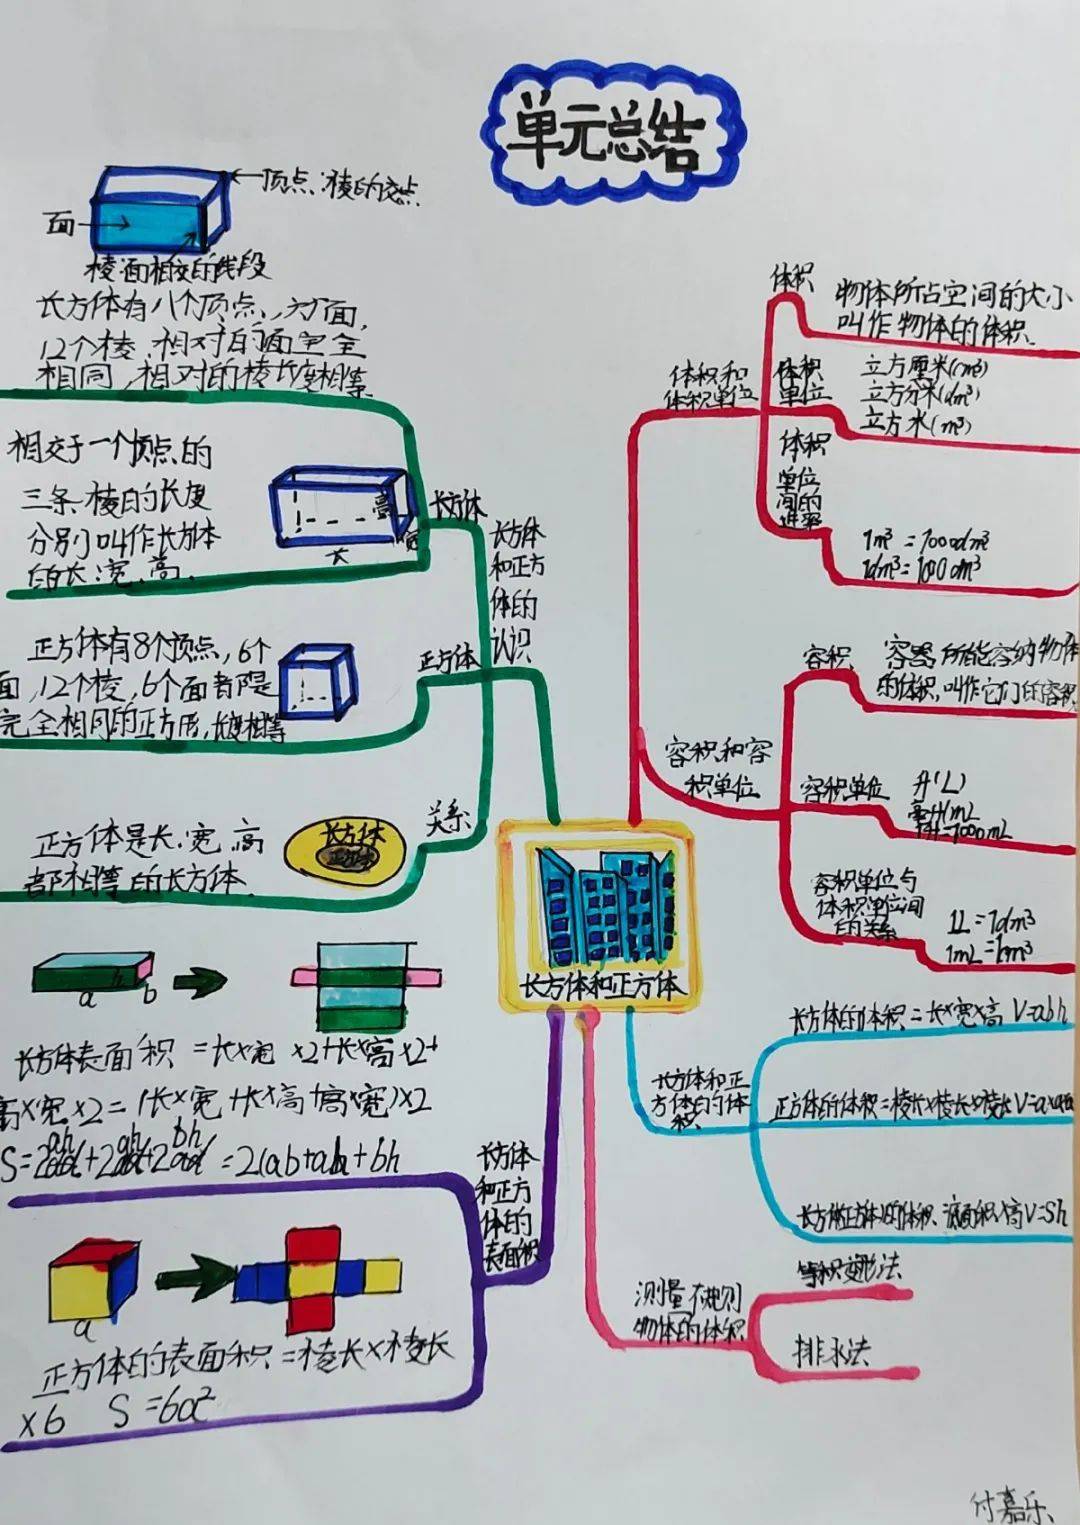 单元总结
顶点:棱的交点
面
棱:面相交的线段
长方体有八个顶点,六个面,
12个棱,相对的面完全
相同,相对的棱长度相等
相交于一个顶点的
三条棱的长度
分别叫作长方体
的长、宽、高.
高
宽
长
长方体
长方体
和正方
体的
认识
正方体有8个顶点,6个
面,12个棱,6个面都是
完全相同的正方形,长度相等
正方体
正方体是长、宽、高
都相等的长方体.
长方体
正方体
关系
a
h
b
长方体表面积=长×宽×2+长×高×2+
高×宽×2=(长×宽+长×高+高×宽)×2
=2(ab+ah+bh
长方体
和正方
体的
表面积
a
正方体的表面积=棱长×棱长
×6 S=6a²
长方体和正方体
体积和
体积单位
体积
物体所占空间的大小
叫作物体的体积.
体积
单位
立方厘米(cm³)
立方分米(dm³)
立方米(m³)
体积
单位
间的
进率
1m³=1000dm³
1dm³=1000cm³
容积和容
积单位
容积
容器所能容纳物体
的体积,叫作它们的容积
容积单位
升(L)
毫升(mL
1升=1000mL
容积单位与
体积单位间
的关系
1L=1dm³
1mL=1cm³
长方体和正
方体的体
积
长方体的体积=长×宽×高 V=abh
正方体的体积=棱长×棱长×棱长V=a×a×a
测量不规则
物体的体积
等积变形法
排水法
付嘉乐